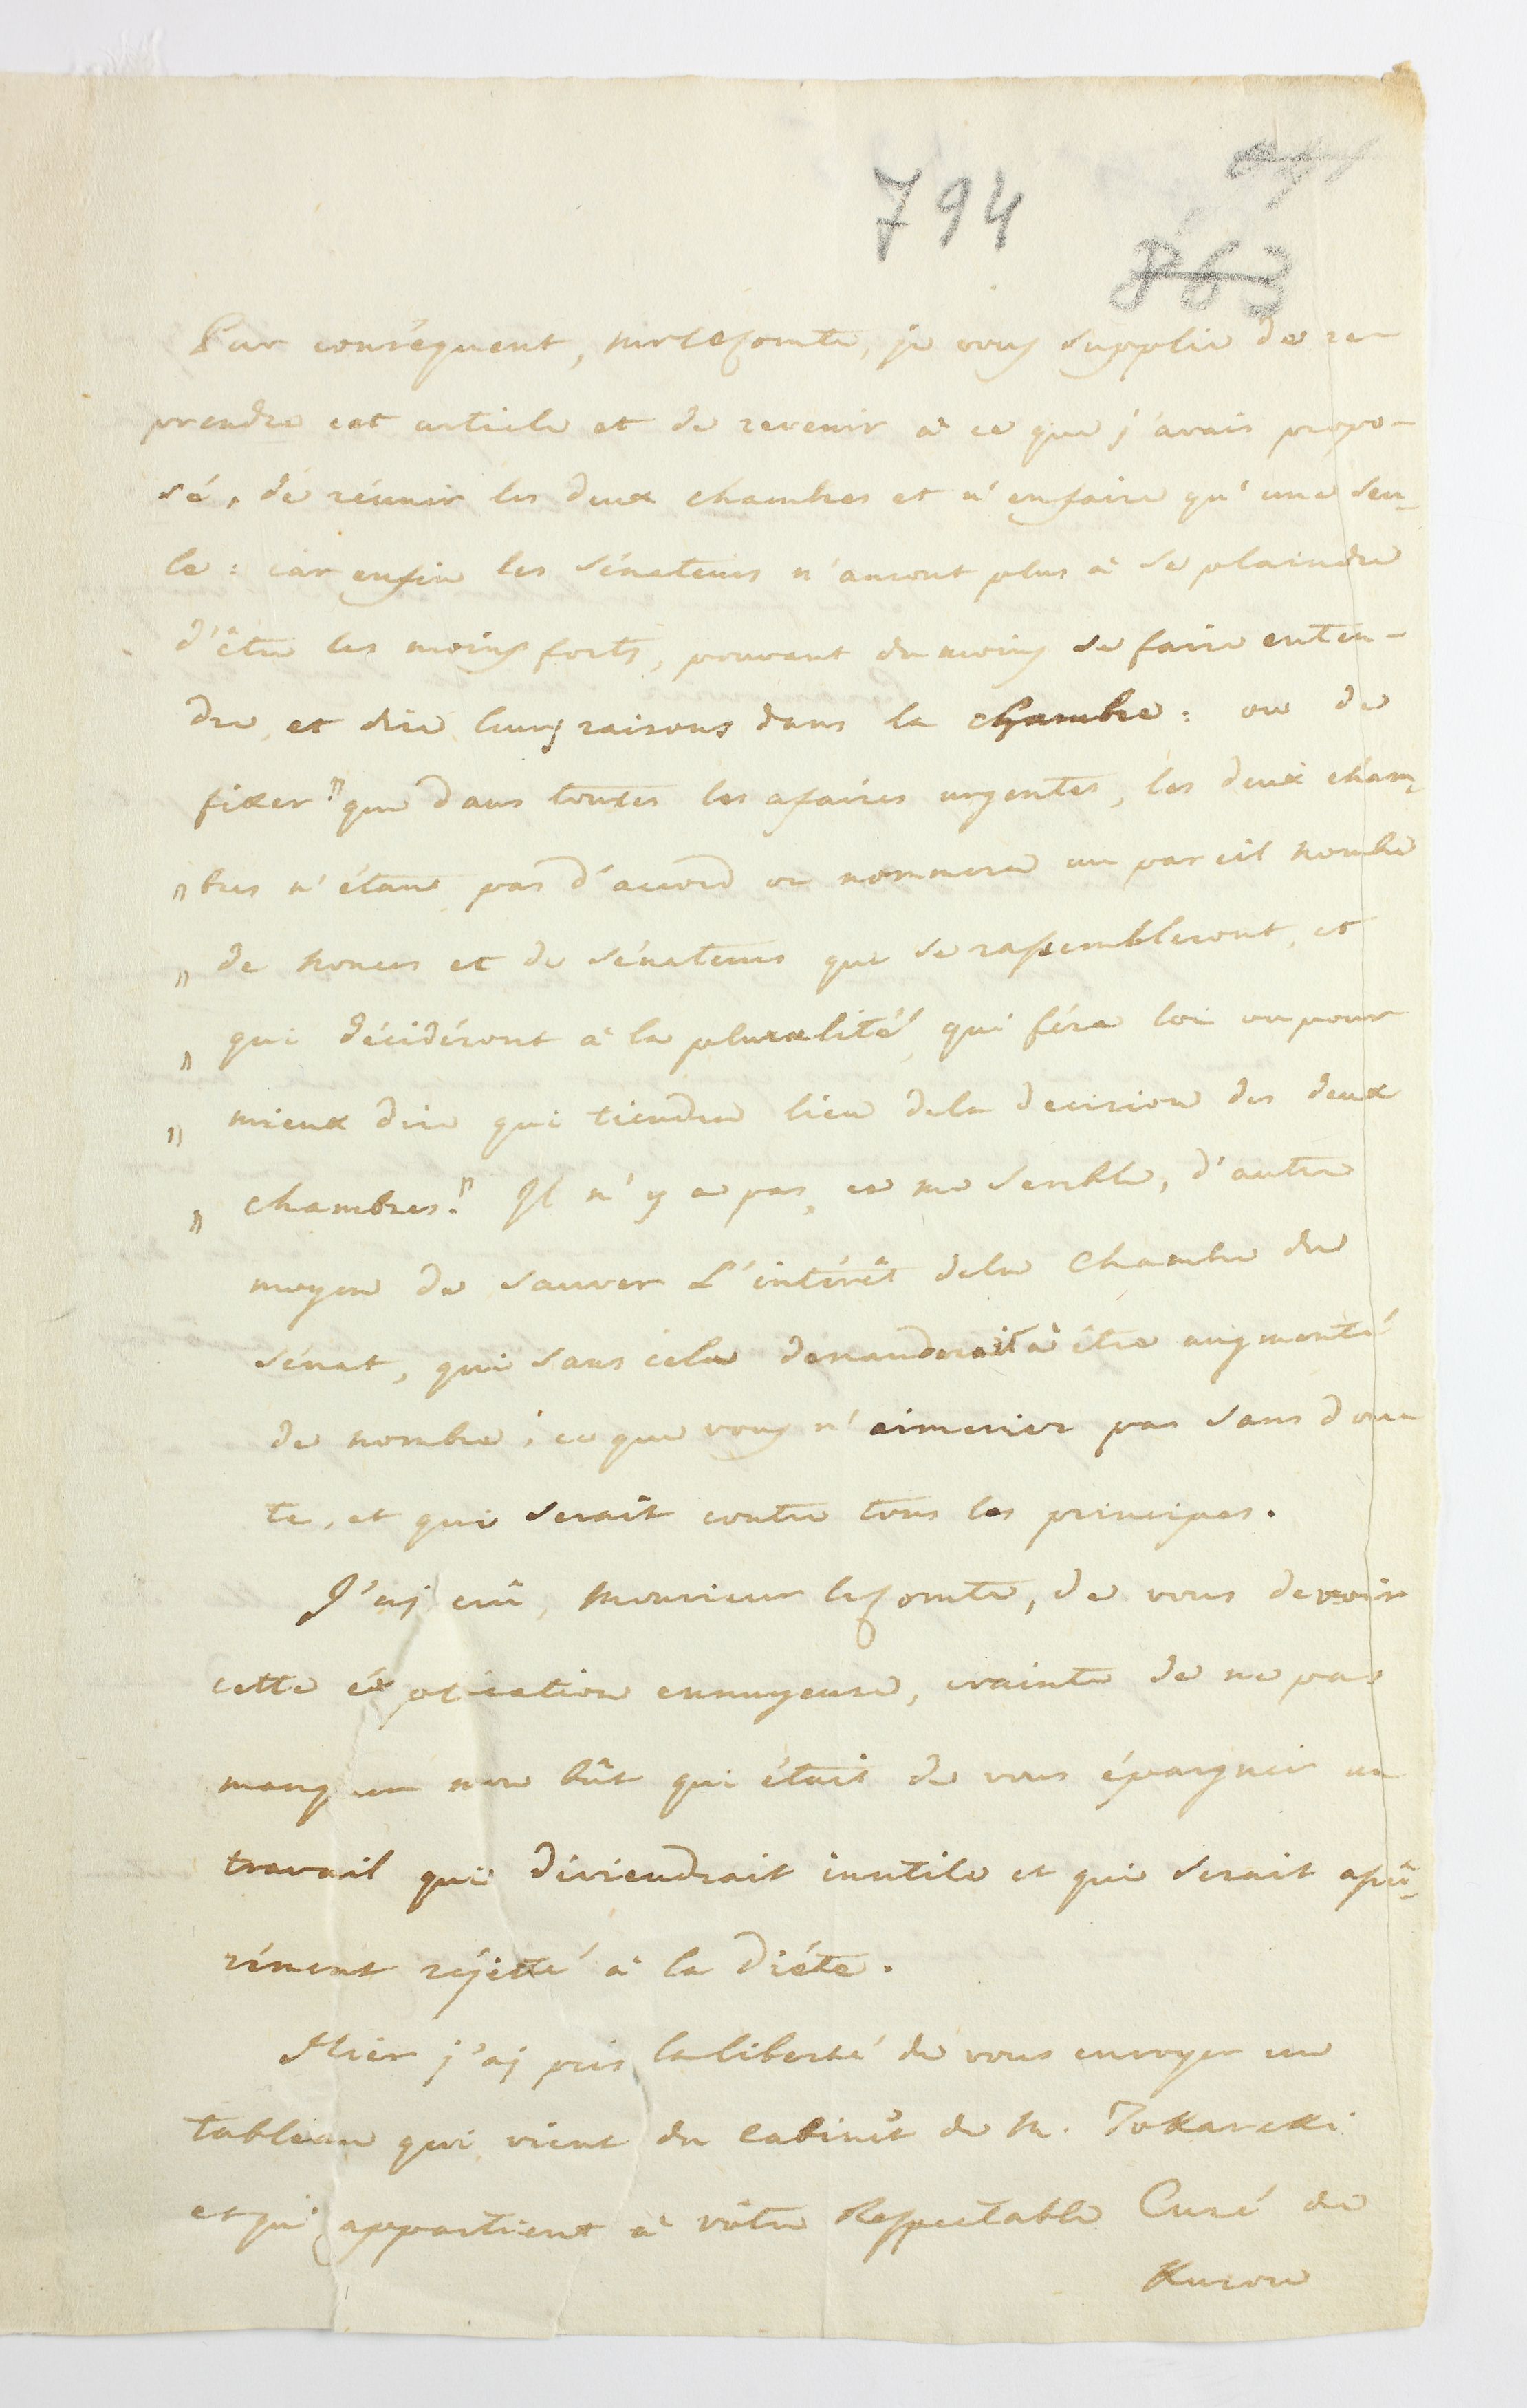 794
863
Par conséquent, mr le Comte, je vous supplie de re-
prendre cet article et de revenir à ce que j'avais propo-
sé, de réunir les deux chambres et n'en faire qu'une seu-
le: car enfin les sénateurs n'auront plus à se plaindre
d'être les moins forts, pouvant du moins se faire enten-
dre, et dire leurs raisons dans la chambre: ou de
fixer "que dans toutes les afaires urgentes, les deux cham-
" bres n'étant pas d'accord on nommera un pareil nombre
" de nonces et de sénateurs qui se rassembleront, et
" qui décidéront à la pluralité, qui féra loi ou pour
" mieux dire qui tiendra lieu dela decision des deux
" chambres." Il n'y a pas, ce me semble, d'autre
moyen de sauver l'intérêt dela Chambre du
sénat, qui sans cela demanderait à être augmenté
de nombre; ce que vous n'aimeriez pas sans dou-
te, et qui serait contre tous les principes.
J'aj crû, Monsieur le Comte, de vous devoir
cette éxplication ennuyeuse, crainte de ne pas
manquer mon bût qui était de vous épargner un
travail qui déviendrait inutile et qui serait assû-
rément réjetté à la diéte.
Hier j'aj pris la liberté de vous envoyer un
tableau qui vient du Cabinet de M. Tokarski
et qui appartient à vôtre Respectable Curé de
Kurow